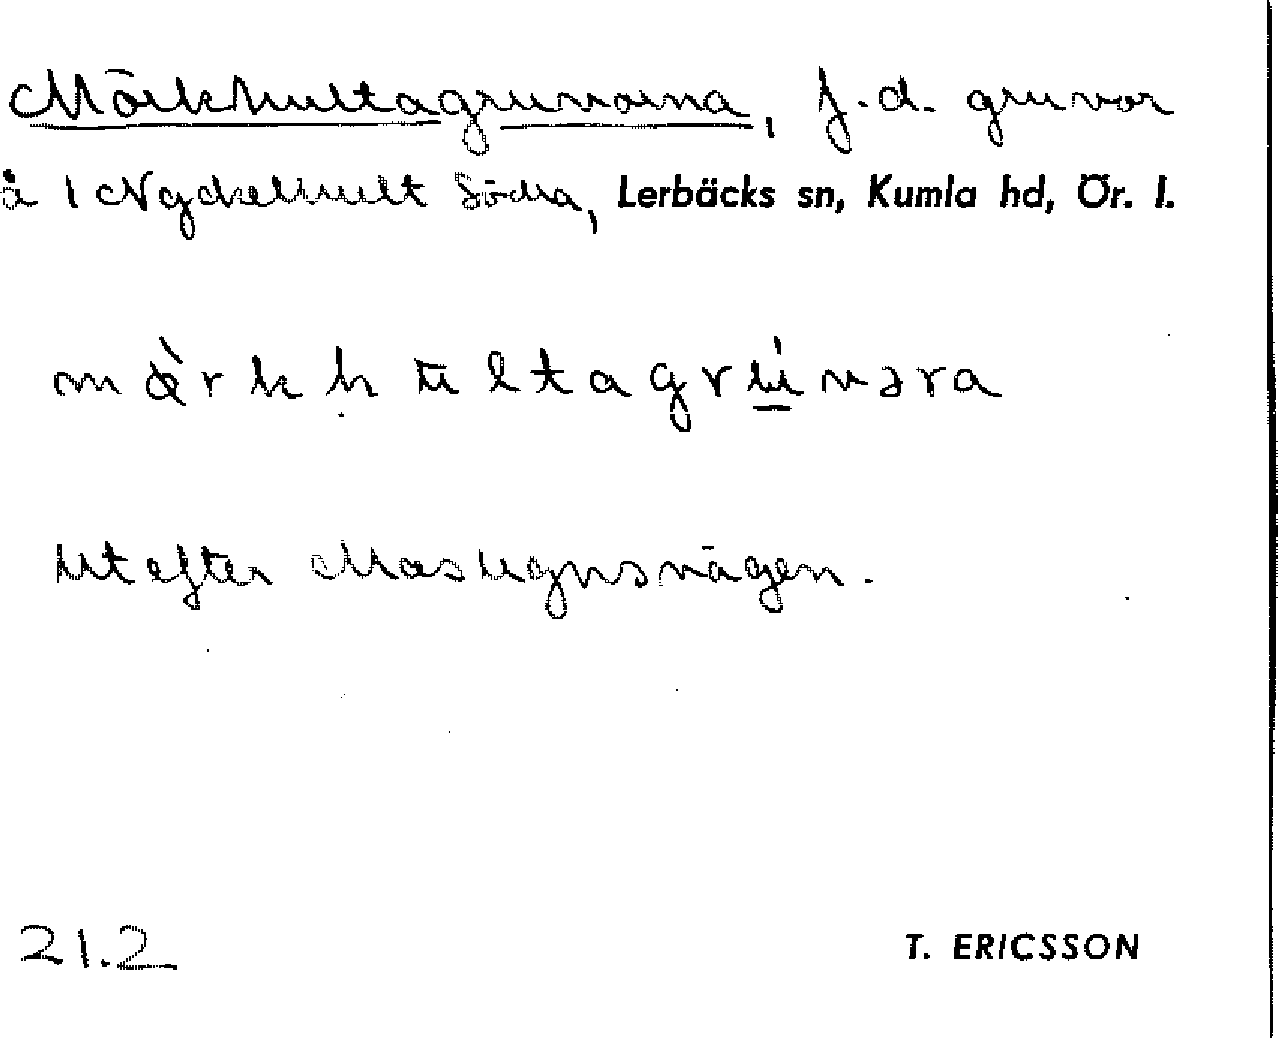 Mörkhultagruvorna, f.d. gruvor
å 1 Nyckelhult Södra, Lerbäcks sn, Kumla hd, Ör. l.
Utefter Masugnsvägen.
21.2
T. ERICSSON